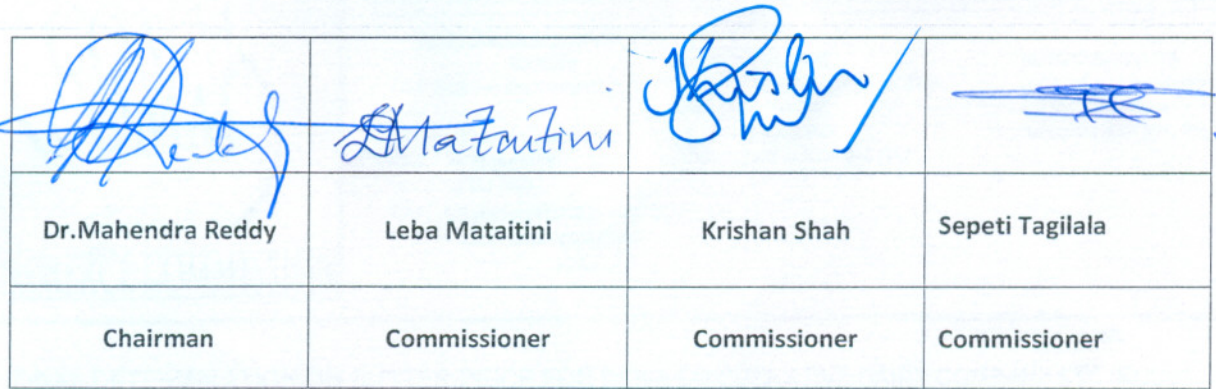 LMataitini
Dr.Mahendra Reddy Leba Mataitini Krishan Shah Sepeti Tagilala
Chairman Commissioner Commissioner Commissioner